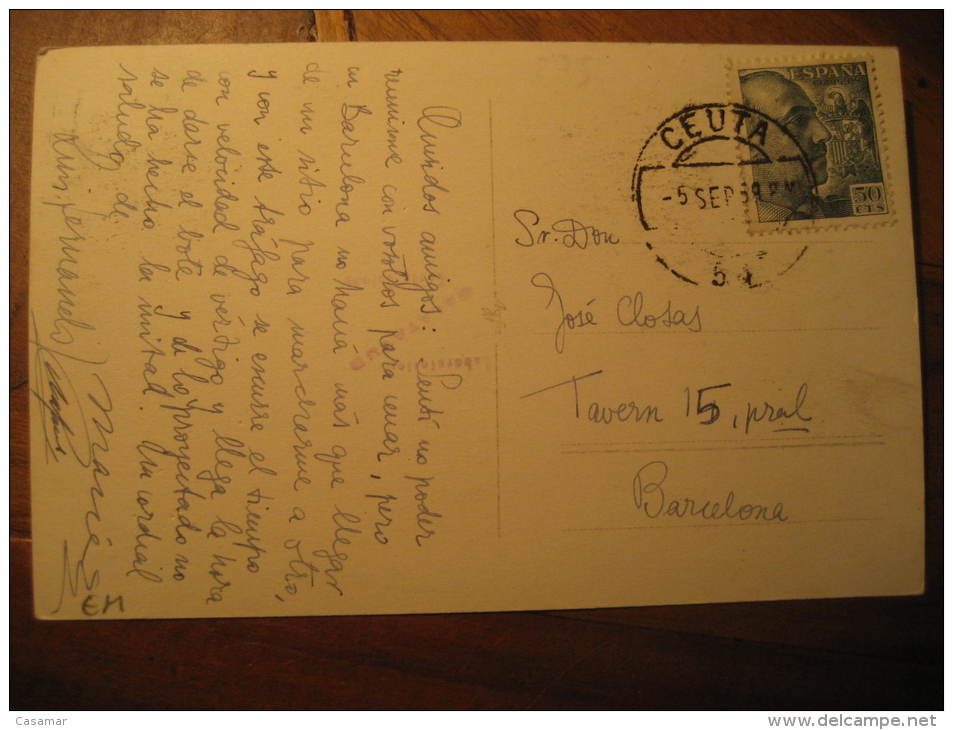 Queridos amigos: Sentí no poder
reunirme con vosotros para cenar, pero
en Barcelona no hacía más que llegar
de un sitio para marcharme a otro,
y con este tráfago se escurre el tiempo
con velocidad de vértigo y llega la hora
de darse el bote y de lo proyectado no
se ha hecho la mitad. Un cordial
saludo de
Luis Fernando / María
EM
ESPAÑA
50
CTS
CEUTA
-5 SEP 59
Sr. Don
José Closas
Tavern 15, pral
Barcelona
Casamar
www.delcampe.net